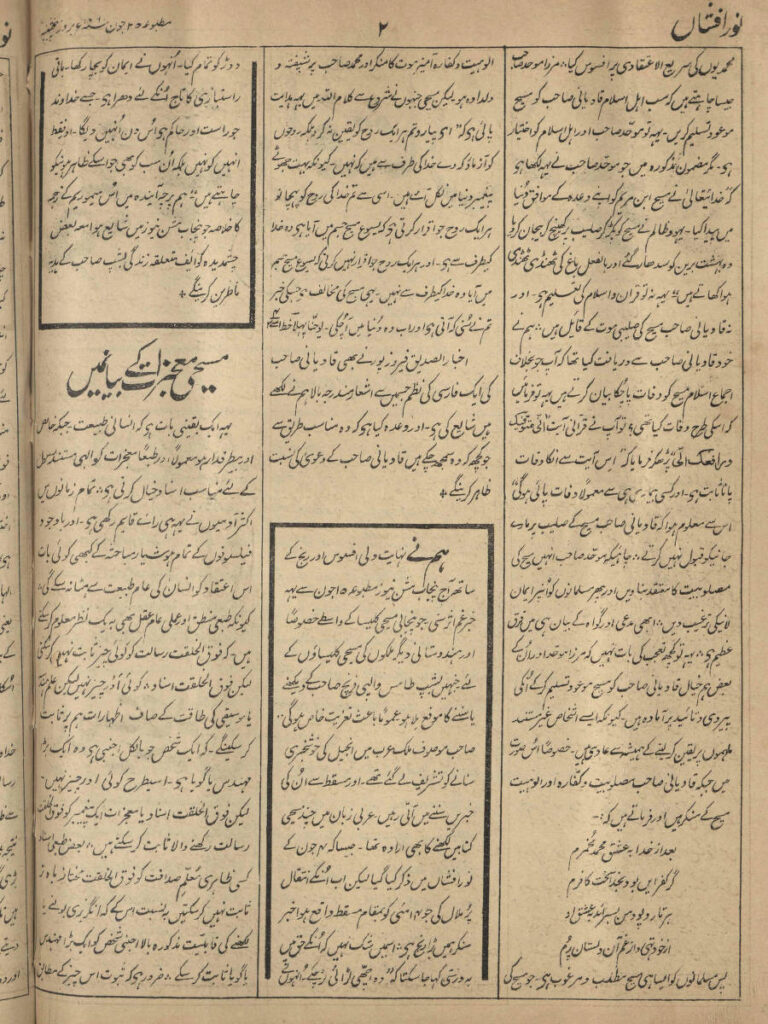 نور افشاں
۲
محمدیوں کی سریع الاعتقادی پر افسوس کیا۔ مرزا موحد صاحب
جیسا چاہتے ہیں کہ سب اہل اسلام قادیانی صاحب کو مسیح
موعود تسلیم کریں۔ یہہ تو موحد صاحب اور اہل اسلام کو اختیار
ہی۔ مگر مضمون مذکورہ میں جو موحد صاحب نے یہہ لکھا ہی
کہ خدا تعالیٰ نے مسیح ابن مریم کو اپنے وعدہ کے موافق دنیا
میں پیدا کیا۔ یہود ظالم نے مسیح کو پکڑ کر صلیب پر کھینچ کر بیجان کر دیا
وہ بہشت برین کو سدھار گئے اور بالفعل باغ کی ٹھنڈی ٹھنڈی
ہوا کھاتے ہیں یہہ نہ تو قرآن و اسلام کی تعلیم ہی۔ اور
نہ قادیانی صاحب مسیح کی صلیبی موت کے قائل ہیں۔ ہم نے
خود قادیانی صاحب سے دریافت کیا تھا کہ آپ جو خلاف
اجماع اسلام مسیح کو وفات یافتہ بیان کرتے ہیں یہہ تو فرمائیں
کہ اسکی طرح وفات کیا تھی؟ تو آپ نے قرآنی آیت انی متوفیک
ورافعک الیّ پڑھکر فرمایا کہ اس آیت سے انکا وفات
پانا ثابت ہی۔ اور کسی بیماری ہی سے معمولاً وفات پائی ہوگی
اس سے معلوم ہوا کہ قادیانی صاحب مسیح کے صلیب پر مارے
جانیکو قبول نہیں کرتے۔ چاہیکہ موحد صاحب انہیں مسیح کی
مصلوبیت کا معتقد بناویں اور پھر مسلمانوں کو انپر ایمان
لانیکی ترغیب دیں۔ ابھی مدعی اور گواہ کے بیان ہی میں فرق
عظیم ہی۔ یہہ تو کچھ تعجب کی بات نہیں کہ مرزا موحد اور ان کے
بعض ہم خیال قادیانی صاحب کو مسیح موعود تسلیم کر کے انکی
پیروی و تائید پر آمادہ ہیں۔ کیونکہ ایسے اشخاص غیر مستند
ملہموں پر یقین کر لینے کے ہمیشہ سے عادی ہیں۔ خصوصاً اس صورت
میں جبکہ قادیانی صاحب مصلوبیت و کفارہ اور الوہیت
مسیح کے منکر ہیں اور فرماتے ہیں کہ:۔
بعد از خدا بہ عشق محمد مخمرم
گر کفر ایں بود بخدا سخت کافرم
ہر تار و پود من بسراید بعشق او
از خود تہی و از غم آن دلستان پرم
پس مسلمانوں کو ایسا ہی مسیح مطلوب و مرغوب ہی جو مسیح کی
الوہیت و کفارہ آمیز موت کا منکر اور محمد صاحب پر شیفتہ و
دلدادہ ہو۔ لیکن مسیحی جنہوں نے شروع سے کلام اللہ میں یہہ ہدایت
پائی ہی کہ اے پیارو تم ہر ایک روح کو یقین نہ کرو بلکہ روحوں
کو آزماؤ کہ وے خدا کی طرف سے ہیں کہ نہیں۔ کیونکہ بہت جھوٹے
پیغمبر دنیا میں نکل آئے ہیں۔ اسی سے تم خدا کی روح کو پہچانو
ہر ایک روح جو اقرار کرتی ہی کہ یسوع مسیح جسم میں آیا ہی وہ خدا
کیطرف سے ہی۔ اور ہر ایک روح جو اقرار نہیں کرتی کہ یسوع مسیح جسم
میں آیا وہ خدا کیطرف سے نہیں۔ یہی مسیح کی مخالف ہی جسکی خبر
تم نے سنی کہ آتی ہی اور اب وہ دنیا میں آ چکی۔ یوحنا پہلا خط
اخبار الصدیق فیروز پور نے بھی قادیانی صاحب
کی ایک فارسی کی نظم جسمیں سے اشعار مندرجہ بالا ہم نے لکھے
ہیں شایع کی ہی۔ اور وعدہ کیا ہی کہ وہ مناسب طریق سے
جو کچھ کہ وہ سمجھ چکے ہیں قادیانی صاحب کے دعویٰ کی نسبت
ظاہر کرینگے ۔
ہم نے نہایت دلی افسوس اور رنج کے
ساتھ آج پنجاب مشن نیوز مطبوعہ ۱۵ جون سے یہہ
خبر غم اثر سنی جو پنجابی مسیحی کلیسا کے واسطے خصوصاً
اور ہندوستانی و دیگر ملکوں کی مسیحی کلیساؤں کے
لئے جنہیں بشپ طامس والپی فرنچ صاحب کے دیکھنے
یا سننے کا موقع ملا ہو عموماً باعث تعزیت خاص ہوگی
صاحب موصوف ملک عرب میں انجیل کی خوشخبری
سنانے کو تشریف لے گئے تھے۔ اور مسقط سے اُن کی
خبریں سننے میں آتی رہیں۔ عربی زبان میں چند مسیحی
کتابیں لکھنے کا بھی ارادہ تھا۔ جیسا کہ ۴ جون کے
نور افشاں میں ذکر کیا گیا لیکن اب اُنکے انتقال
پر ملال کی جو ۱۴ مئی کو بمقام مسقط واقع ہوا خبر
سنکر ہمیں بڑا رنج ہی۔ اسمیں شک نہیں کہ اُنکے حق میں
بدرستی کہا جاسکتا کہ وہ اچھی لڑائی لڑ چکے۔ انہوں نے
دوڑ کو تمام کیا۔ اُنہوں نے ایمان کو بچا رکھا۔ باقی
راستبازی کا تاج اُنکے لئے دھرا ہی۔ جسے خداوند
جو راست اور حاکم ہی اُس دن اُنہیں دیگا۔ اور فقط
انہیں کو نہیں بلکہ اُن سب کو بھی جو اسکے ظاہر ہونیکو
چاہتے ہیں۔ ہم پرچہ آیندہ میں اُس میموریم کے ترجمہ
کا خلاصہ جو پنجاب مشن نیوز میں شایع ہوا معہ بعض
چشمدیدہ کوائف متعلقہ زندگی بشپ صاحب کے ہدیہ
ناظرین کرینگے ۔
مسیحی معجزات کے بیان میں
یہہ ایک یقینی بات ہی کہ انسانی طبیعت جبکہ خاص
اور بیطرفدار ہو معمولاً اور طبعاً معجزات کو الہٰی مستند رسول
کے لئے مناسب اسناد خیال کرتی ہی۔ تمام زمانوں میں
اکثر آدمیوں نے یہہ ہی رائے قایم رکھی ہی۔ اور باوجود
فیلسوفوں کے تمام ہوشیار مباحثہ کے کبھی کوئی بات
اس اعتقاد کو انسان کی عام طبیعت سے مٹا نہ سکے گی
کیونکہ طبعی منطق اور عملی عام عقل بھی یہہ یک نظر معلوم کر سکتے
ہیں۔ کہ فوق الخلقت رسالت کو کوئی چیز ثابت نہیں کر سکتی
لیکن فوق الخلقت اسناد۔ کوئی اَور چیز نہیں لیکن علم ہندسہ
یا موسیقی کی طاقت کے صاف اظہارات ہم پر ثابت
کر سکینگے۔ کہ ایک شخص جو بالکل اجنبی ہی وہ ایک بڑا
مہندس یا گویا ہی۔ اسیطرح کوئی اور چیز نہیں۔
لیکن فوق الخلقت اسناد یا معجزات ایک پیغمبر کو فوق الخلقت
رسالت رکھنے والا ثابت کر سکتے ہیں۔ بعض طبعی اسناد
کسی ظاہری معلّم صداقت کو فوق الخلقت مختار نہ باور
ثابت نہیں کر سکتیں بہ نسبت اس کے کہ انگریزی بولنے یا
لکھنے کی قابلیت مذکورہ بالا اجنبی شخص کو ایک بڑا مہندس
یا گویا ثابت کر سکے۔ ضرور ہی کہ ثبوت اس چیز کے مطابق